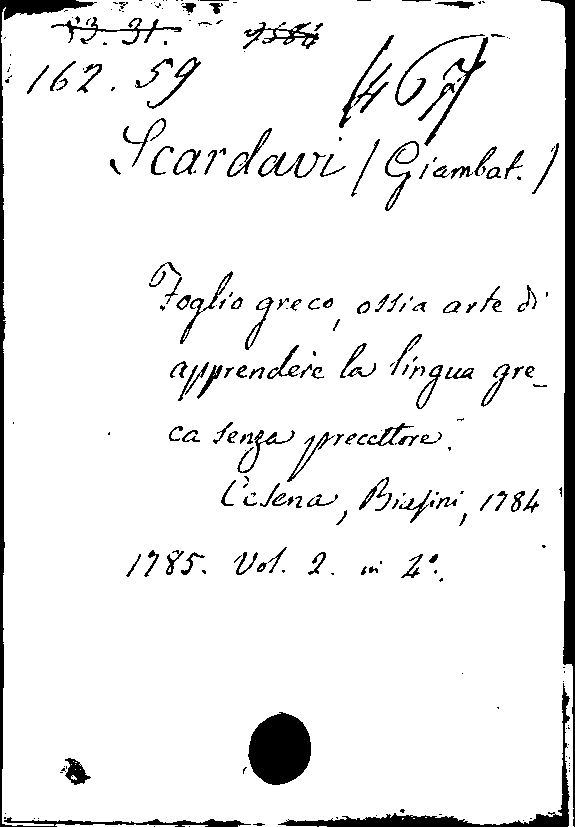 53.31.
162.59
Scardavi (Giambat.)
Foglio greco, ossia arte di
apprendere la lingua gre_
ca senza precettore.
Cesena, Biasini, 1784
1785. Vol. 2. in 4°.